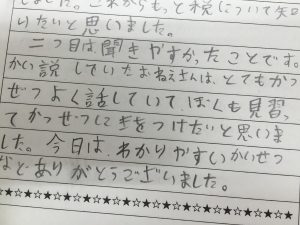 しました。これからもっと税について知
りたいと思いました。
二つ目は聞きやすかったことです。
かい説していたおねえさんは、とてもかつ
ぜつよく話していて、ぼくも見習っ
てかつぜつに気をつけたいと思いま
した。今日は、わかりやすいかいせつ
などありがとうございました。
☆★☆★☆★☆★☆★☆★☆★☆★☆★☆★☆★☆★